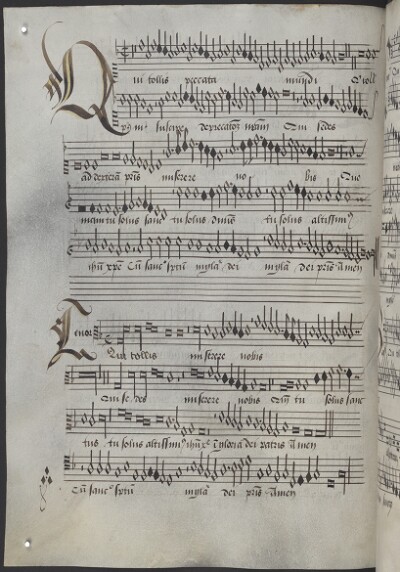 Qui tollis peccata mundi Qui toll
pcc̄ mi suscipe deprecatōȝ nr̄am Qui sedes
ad dexterā pr̄is miserere no bis Quo
niam tu solus sanc tus solus dn̄us tu solus altissim9
ihū xp̄e Cū sanc° sp̄tu in gl̄a dei in gl̄a dei pr̄is amen
Tenor
Qui tollis miserere nobis
Qui se des miserere nobis Qm̄ tu solus sanc
tus tu solus altissim9 ihū xp̄e in gloria dei patris amen
Cū sanc° sp̄tu in gl̄a dei pr̄is amen